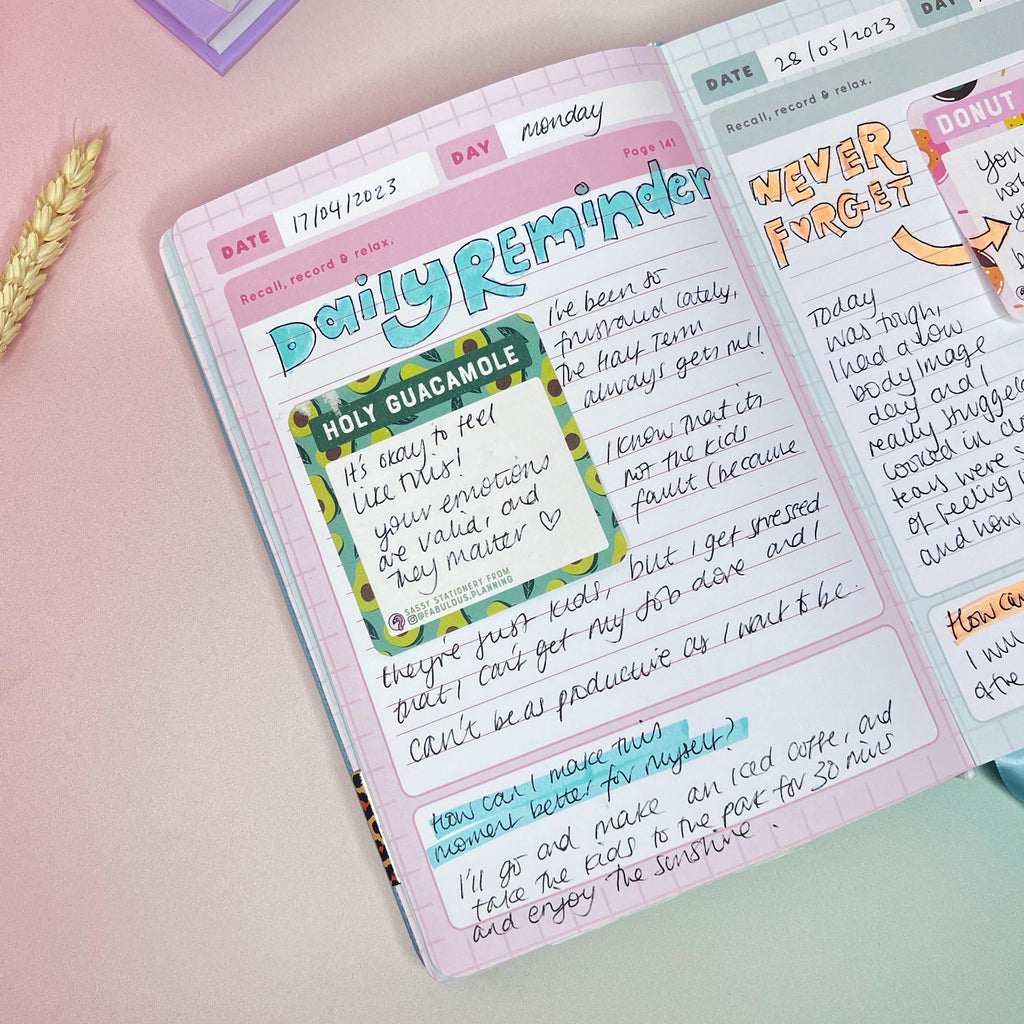 DATE 17/04/2023 DAY monday
Recall, record & relax. Page 141
Daily Reminder
HOLY GUACAMOLE
It's okay to feel
like this!
your emotions
are valid, and
they matter ♡
SASSY STATIONERY FROM
@FABULOUS.PLANNING
I've been so
frustrated lately,
The Half Term
always gets me!
I know that its
not the kids
fault (because
they're just kids, but I get stressed
that I can't get my job done and I
can't be as productive as I want to be.
How can I make this
moment better for myself?
I'll go and make an iced coffe, and
take the kids to the park for 30 mins
and enjoy the sunshine.
DATE 28/05/2023 DAY
Recall, record & relax.
NEVER
FORGET
DONUT
You
Today
was tough,
I had a low
body image
day and I
really struggled
looked in
tears were
of feeling
and how
How can
I will